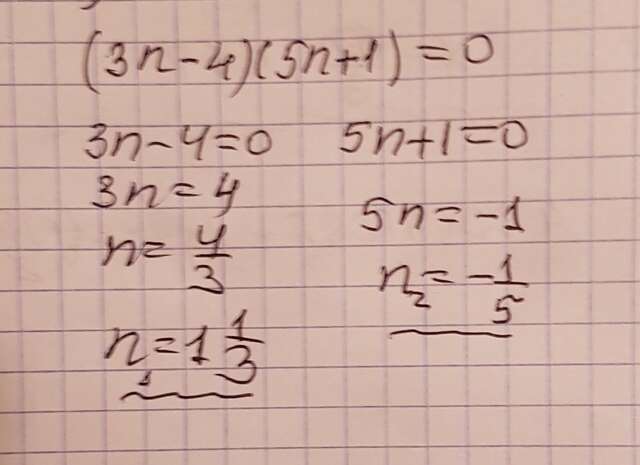 (3n-4)(5n+1)=0
3n-4=0 5n+1=0
3n=4
5n=-1
n=4/3
n₂=-1/5
n₁=1 1/3